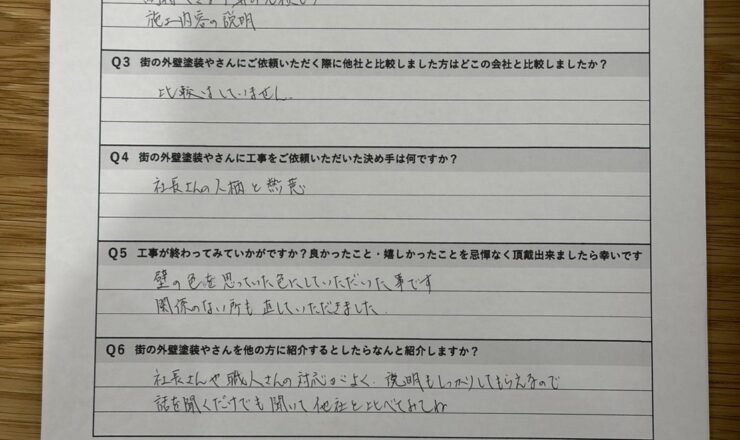 施工内容の説明
Q3 街の外壁塗装やさんにご依頼いただく際に他社と比較しました方はどこの会社と比較しましたか？
比較はしていません
Q4 街の外壁塗装やさんに工事をご依頼いただいた決め手は何ですか？
社長さんの人柄と熱意
Q5 工事が終わってみていかがですか？良かったこと・嬉しかったことを忌憚なく頂戴出来ましたら幸いです
壁の色を思っていた色にしていただいた事です
関係のない所も直していただきました
Q6 街の外壁塗装やさんを他の方に紹介するとしたらなんと紹介しますか？
社長さんや職人さんの対応がよく、説明もしっかりしてもらえるので
話を聞くだけでも聞いて他社と比べてみてね